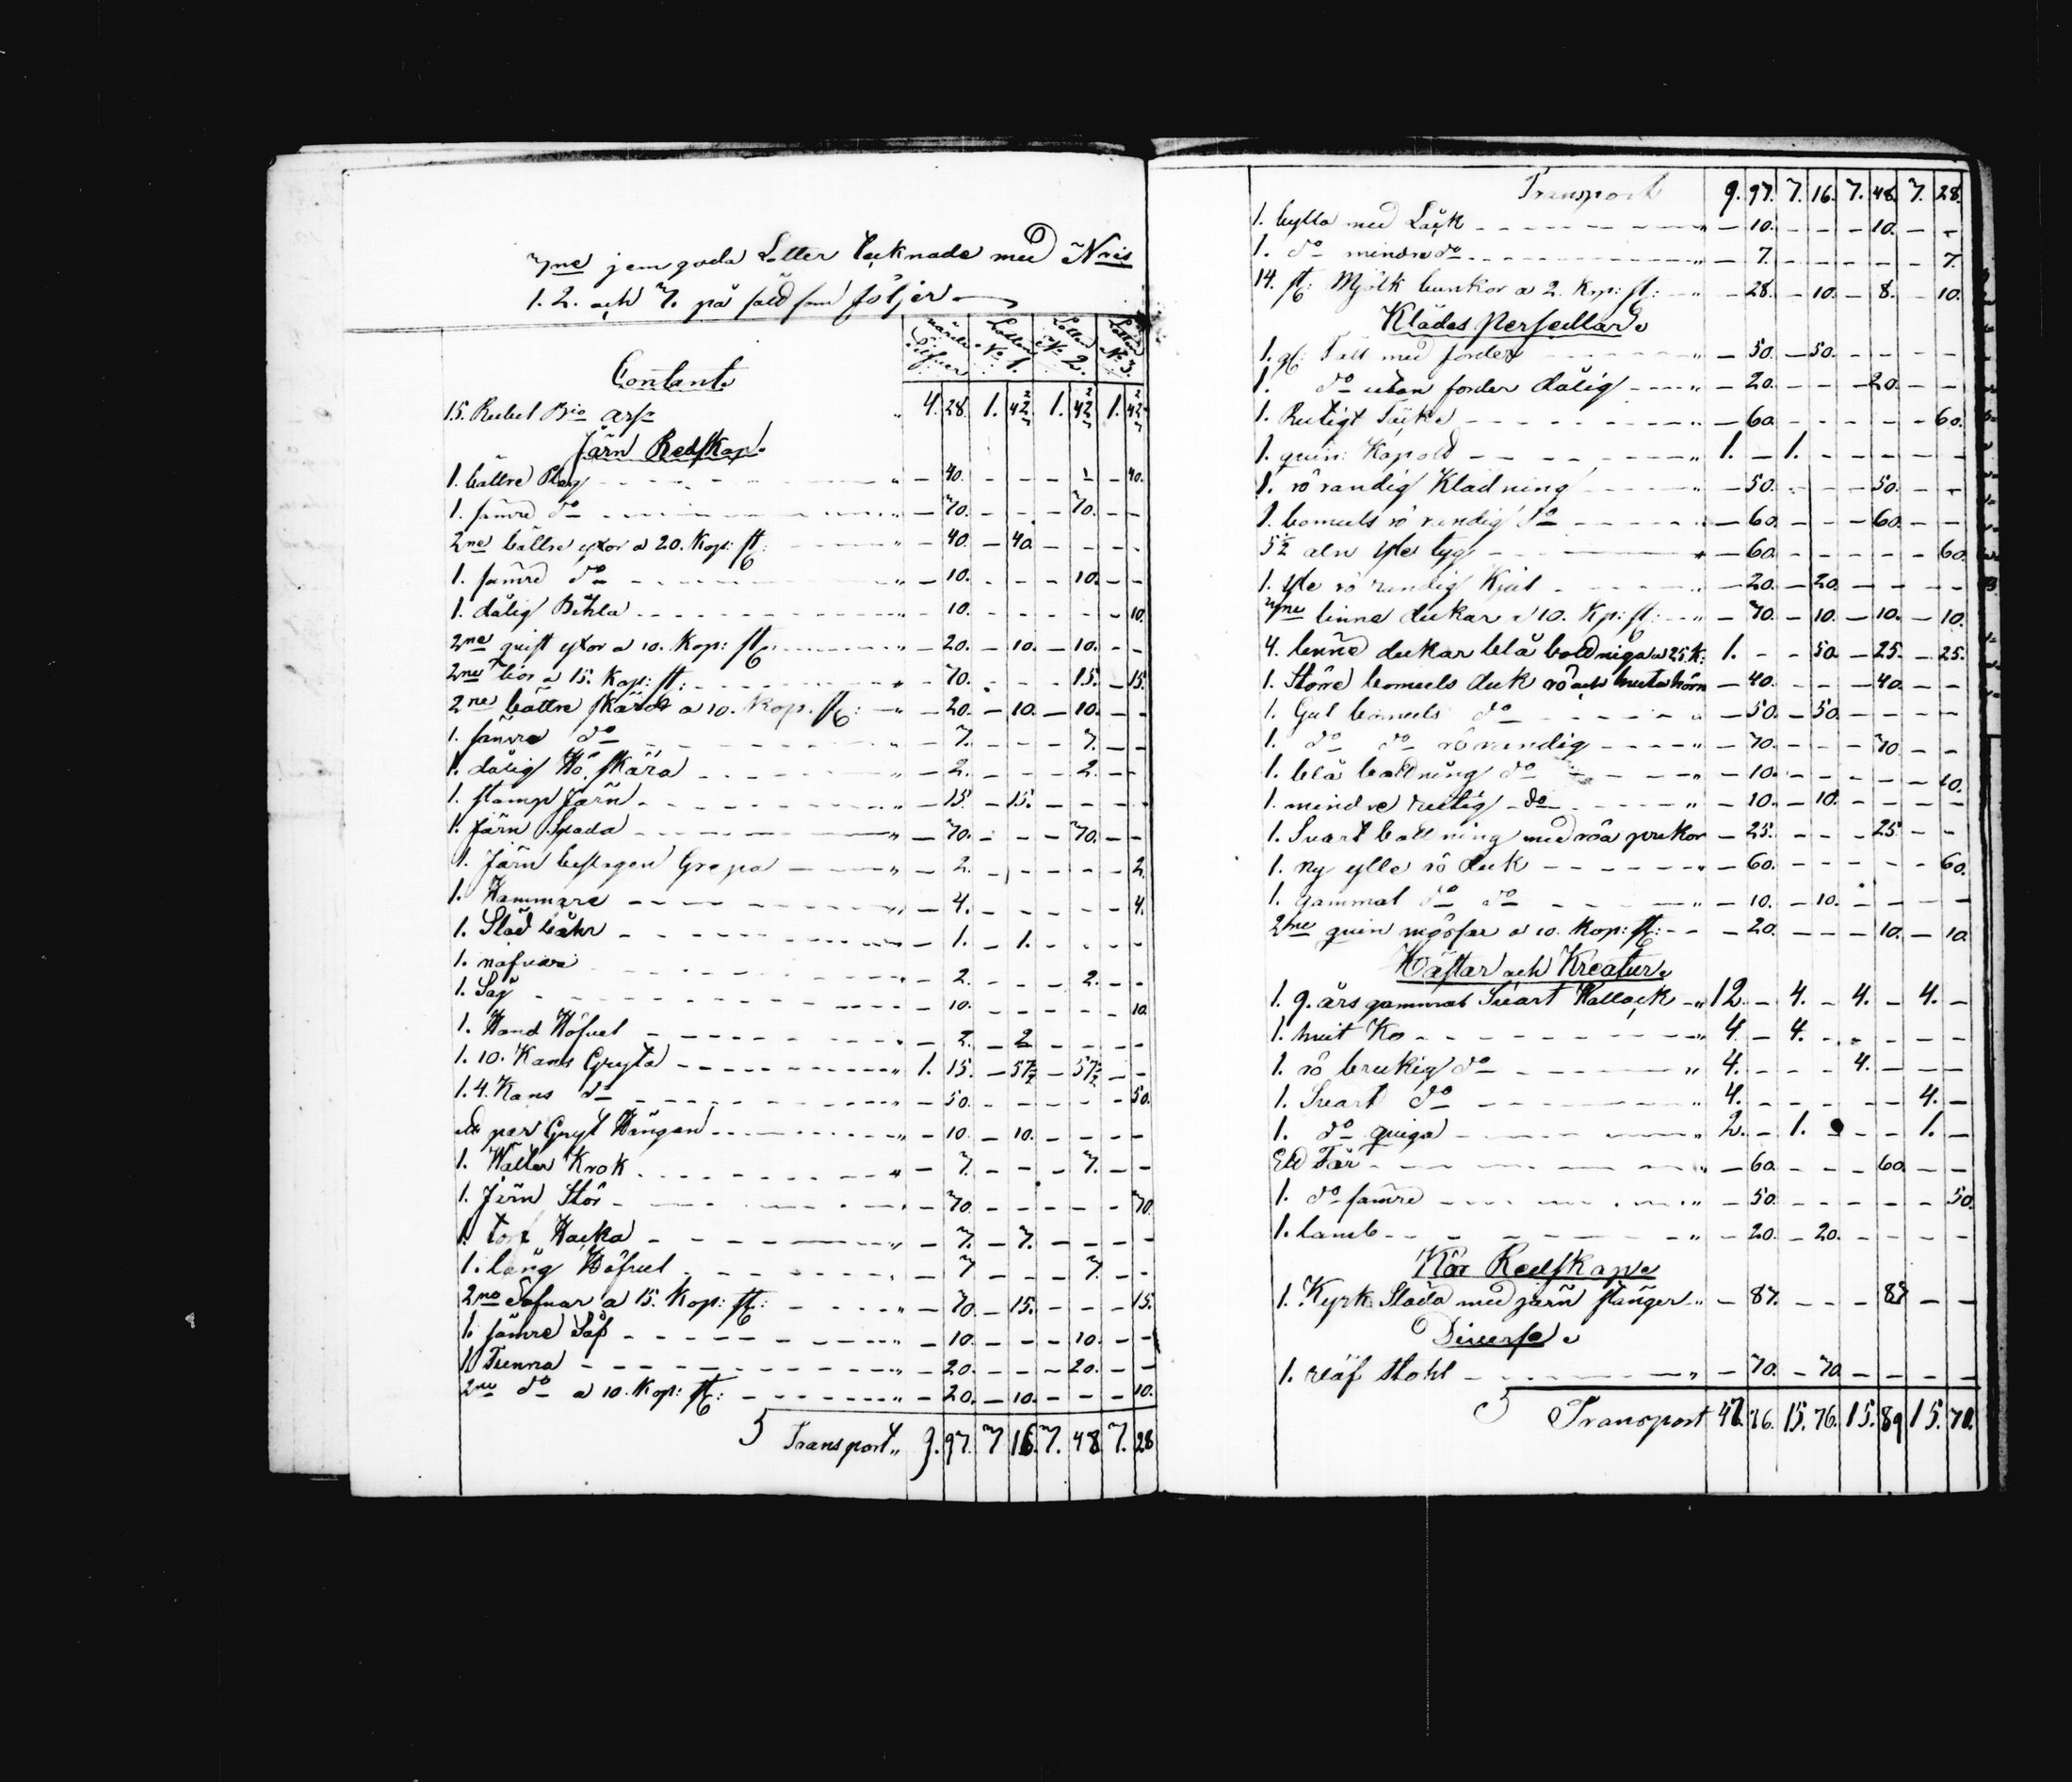 3ne jemgoda Lotter tecknade med Nris
1. 2. och 3. på sätt som följer
wärde Silfver Lotten No 1. Lotten No 2. Lotten No 3.
Contant.
15. Rubel Bco ass: " 4. 28. 1. 42 2/3 1. 42 2/3 1. 42 2/3
Järn Redskap
1. bättre Plog " - 40. - - - - - 40.
1. sämre do " - 30. - - - 30. - -
2ne bättre yxor a 20. Kop: st: " - 40. - 40. - - - -
1. sämre do " - 10. - - - 10. - -
1. dålig Bihla " - 10. - - - - - 10.
2ne quist yxor a 10. Kop: st: " - 20. - 10. - 10. - -
2ne lior a 15. Kop: st: " - 30. - - - 15. - 15.
2ne bättre skäror a 10. Kop. st: " - 20. - 10. - 10. - -
1. sämre do " - 3. - - - 3. - -
1. dålig Hö skära " - 2. - - - 2. - -
1. stamp Järn " - 15. - 15. - - - -
1. Järn Spada " - 30. - - - 30. - -
1. Järn beslagen Grepa " - 2. - - - - - 2.
1. Hammare " - 4. - - - - - 4.
1. Städ " - 1. - 1. - - - -
1. nafvare - 2. - - - 2. - -
1. Såg " - 10. - - - - - 10.
1. Hand Höfvel - 2. - 2 - - - -
1. 10. Kans Gryta " 1. 15. - 57 1/2 - 57 1/2 - -
1. 4. Kans do " - 50. - - - - - 50.
ett par Gryt Hängen " - 10. - 10. - - - -
1. Hälter Krok " - 3. - - - 3. - -
1. Järn Stör " - 30. - - - - - 30.
1. torf Hacka " - 3. - 3. - - - -
1. lång Höfvel " - 3 - - - 3. - -
2ne a 15. Kop: st: " - 30. - 15. - - - 15.
1. sämre " - 10. - - - 10. - -
1. Tunna " - 20. - - - 20. - -
2ne do a 10. Kop: st: " - 20. - 10. - - - 10.
Transport " 9. 97. 3 16. 3. 48 3. 28
Transport 9. 97. 3. 16. 3. 48. 3. 28.
1. bytta med Låck " - 10. - - - 10. - -
1. do mindre do " - 3. - - - - - 3.
14. st: Mjölk bunkor a 2. Kop: st: " - 28. - 10. - 8. - 10.
Klädes Persedlar
1. gl: Fäll med foder " - 50. - 50. - - - -
1. do utan foder dålig " - 20. - - - 20. - -
1. Rutigt Täcke " - 60. - - - - - 60.
1. quin: Kapott " 1. - 1. - - - - -
1. rö randig Kladning - 50. - - - 50. - -
1. bomuls rö randig do - 60. - - - 60. - -
5 1/2 aln ylle tyg " - 60. - - - - - 60.
1. ylle rö randig Kjol " - 20. - 20. - - - -
3ne linne dukar a 10. Kp: st: " - 30. - 10. - 10. - 10.
4. linne dukar blå boldniga a 25. K: 1. - - 50. - 25. - 25.
1. Större bomuls duk rö och huita hörn - 40. - - - 40. - -
1. Gul bomuls do " - 50. - 50. - - - -
1. do do rö randig " - 30. - - - 30. - -
1. blå bottning do " - 10. - - - - - 10.
1. mindre rutig do " - 10. - 10. - - - -
1. Svart bottning med röa prickor - 25. - - - 25. - -
1. ny ylle rö duk " - 60. - - - - - 60.
1. gammal do do " - 10. - 10. - - - -
2ne quin mössor a 10. Kop: st: - - 20. - - - 10. - 10.
Hästar och Kreatur
1. 9. års gammal Svart Wallack " 12. - 4. - 4. - 4. -
1. huit Ko " 4. - 4. - - - - -
1. rö brukig do " 4. - - - 4. - - -
1. Svart do " 4. - - - - - 4. -
1. do quiga " 2. - 1. - - - 1. -
Ett Får " - 60. - - - 60. - -
1. do sämre " - 50. - - - - - 50.
1. lamb " - 20. - 20. - - - -
Kör Redskap
1. Kyrk Släda med järn stänger " - 83. - - - 83 - -
Diverse
1. räf stohl " - 30. - 30. - - - -
Transport 47. 36. 15. 76. 15. 89 15. 70.